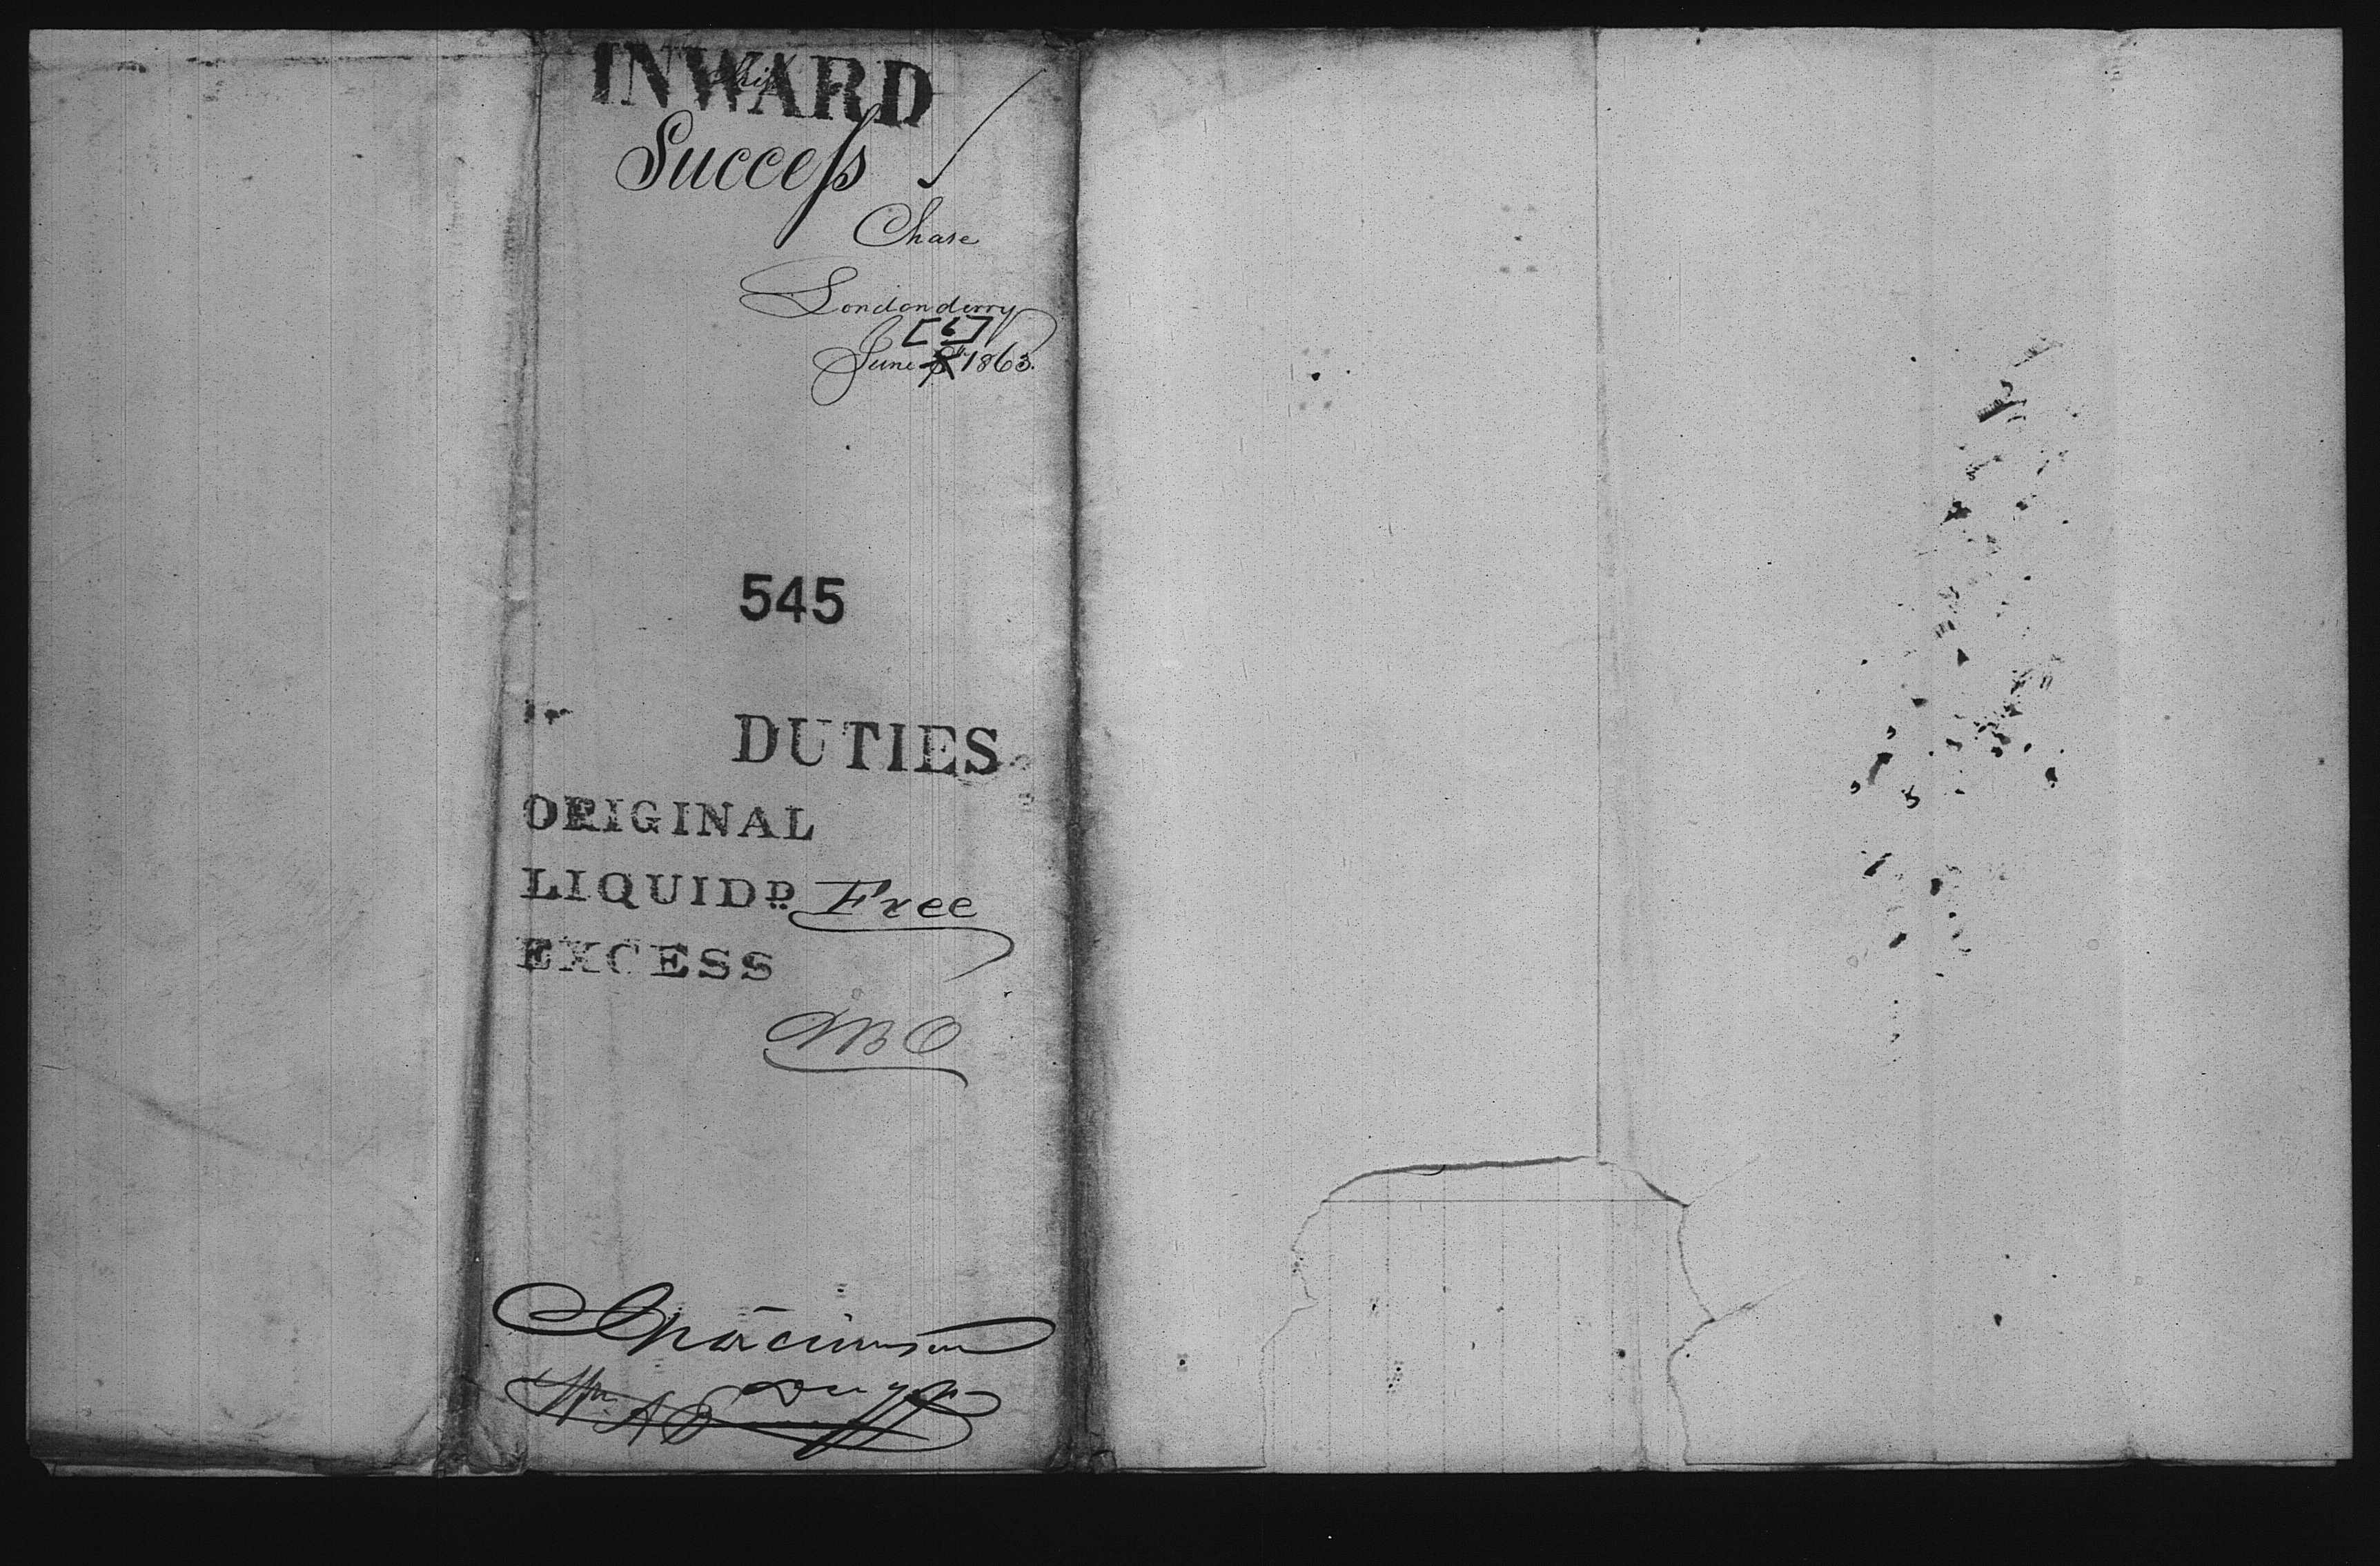 INWARD
Ship
Success
Chase
Londonderry
[6]
June 8th 1863.
545
DUTIES
ORIGINAL
LIQUIDD. Free
EXCESS
Wm A B Duff